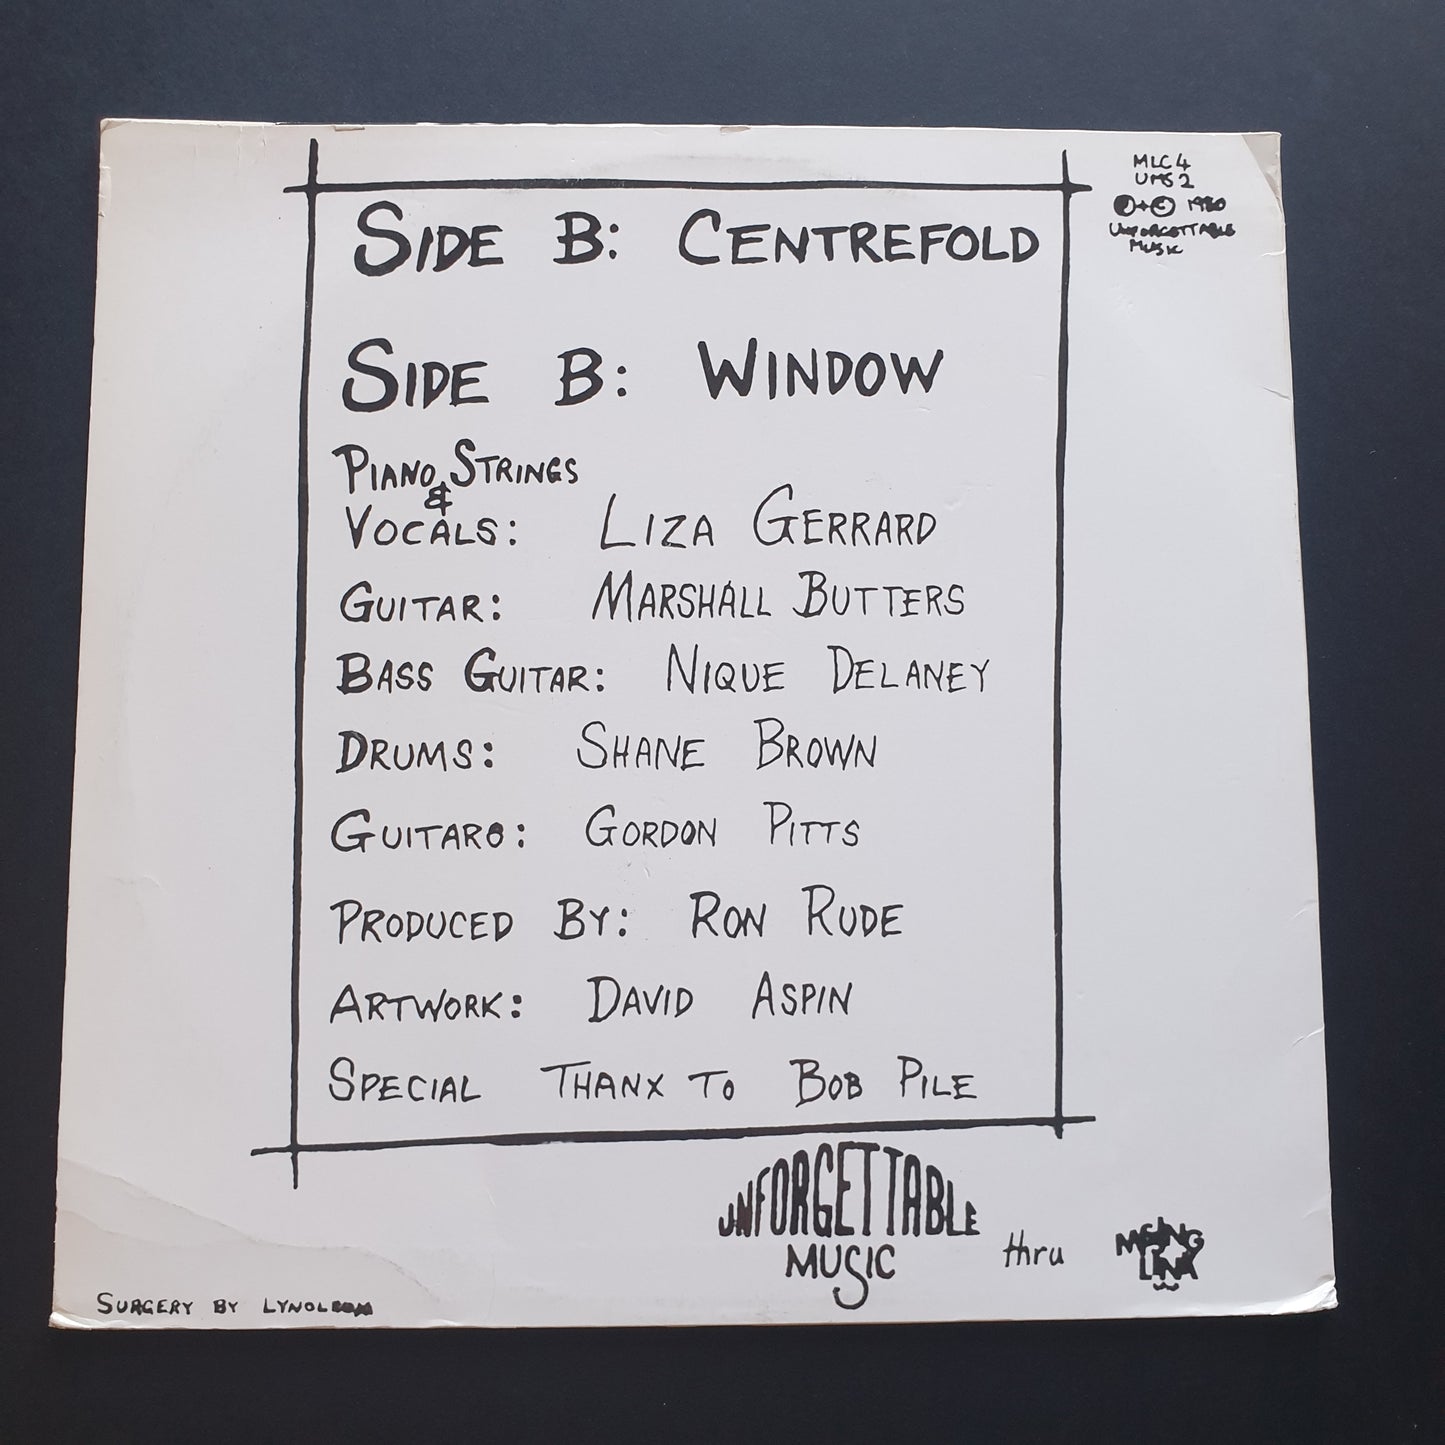 MLC 4
UMS 2
℗+© 1980
UNFORGETTABLE
MUSIC
SIDE B: CENTREFOLD
SIDE B: WINDOW
PIANO, STRINGS
&
VOCALS: LIZA GERRARD
GUITAR: MARSHALL BUTTERS
BASS GUITAR: NIQUE DELANEY
DRUMS: SHANE BROWN
GUITARS: GORDON PITTS
PRODUCED BY: RON RUDE
ARTWORK: DAVID ASPIN
SPECIAL THANX TO BOB PILE
UNFORGETTABLE
MUSIC
thru
MISSING
LINK
SURGERY BY